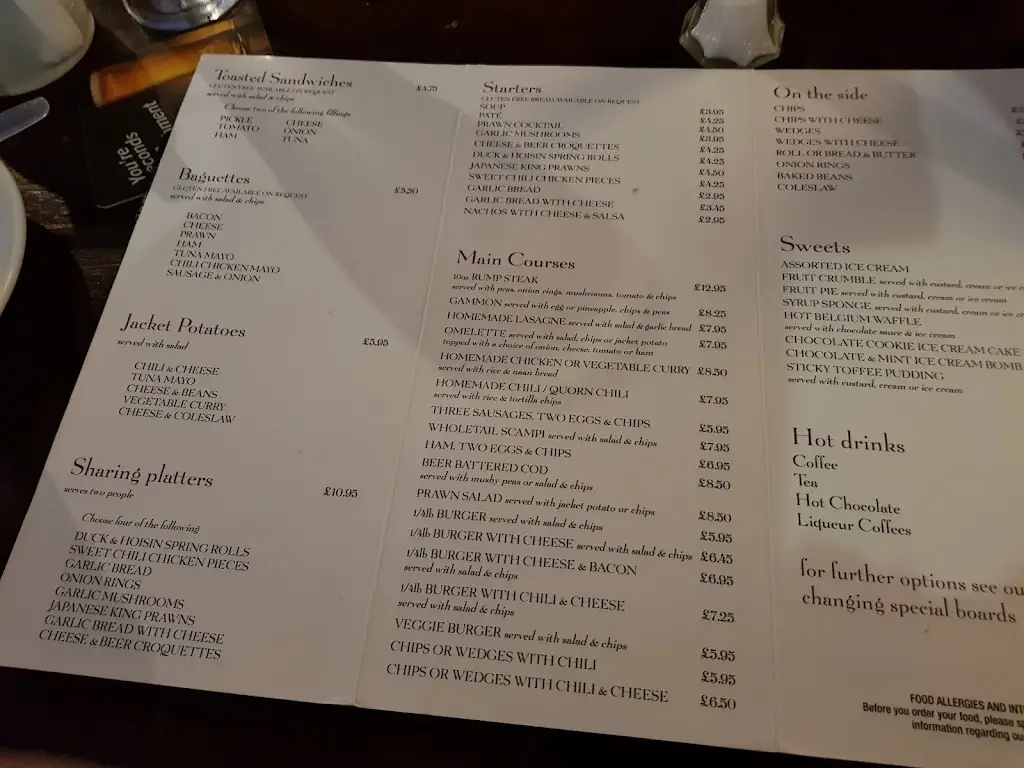 Toasted Sandwiches £4.75
GLUTEN FREE AVAILABLE ON REQUEST
served with salad & chips
Choose two of the following fillings
PICKLE CHEESE
TOMATO ONION
HAM TUNA
Baguettes
GLUTEN FREE AVAILABLE ON REQUEST £5.50
served with salad & chips
BACON
CHEESE
PRAWN
HAM
TUNA MAYO
CHILI CHICKEN MAYO
SAUSAGE & ONION
Jacket Potatoes
served with salad £5.95
CHILI & CHEESE
TUNA MAYO
CHEESE & BEANS
VEGETABLE CURRY
CHEESE & COLESLAW
Sharing platters
serves two people £10.95
Choose four of the following
DUCK & HOISIN SPRING ROLLS
SWEET CHILI CHICKEN PIECES
GARLIC BREAD
ONION RINGS
GARLIC MUSHROOMS
JAPANESE KING PRAWNS
GARLIC BREAD WITH CHEESE
CHEESE & BEER CROQUETTES
Starters
GLUTEN FREE BREAD AVAILABLE ON REQUEST
SOUP £3.95
PATÉ £4.25
PRAWN COCKTAIL £4.50
GARLIC MUSHROOMS £3.95
CHEESE & BEER CROQUETTES £4.25
DUCK & HOISIN SPRING ROLLS £4.25
JAPANESE KING PRAWNS £4.50
SWEET CHILI CHICKEN PIECES £4.25
GARLIC BREAD £2.95
GARLIC BREAD WITH CHEESE £3.45
NACHOS WITH CHEESE & SALSA £2.95
Main Courses
10oz RUMP STEAK
served with peas, onion rings, mushrooms, tomato & chips £12.95
GAMMON served with egg or pineapple, chips & peas £8.25
HOMEMADE LASAGNE served with salad & garlic bread £7.95
OMELETTE served with salad, chips or jacket potato £7.95
topped with a choice of onion, cheese, tomato or ham
HOMEMADE CHICKEN OR VEGETABLE CURRY £8.50
served with rice & naan bread
HOMEMADE CHILI / QUORN CHILI
served with rice & tortilla chips £7.95
THREE SAUSAGES, TWO EGGS & CHIPS £5.95
WHOLETAIL SCAMPI served with salad & chips £7.95
HAM, TWO EGGS & CHIPS £6.95
BEER BATTERED COD
served with mushy peas or salad & chips £8.50
PRAWN SALAD served with jacket potato or chips £8.50
1/4lb BURGER served with salad & chips £5.95
1/4lb BURGER WITH CHEESE served with salad & chips £6.45
1/4lb BURGER WITH CHEESE & BACON £6.95
served with salad & chips
1/4lb BURGER WITH CHILI & CHEESE £7.25
served with salad & chips
VEGGIE BURGER served with salad & chips £5.95
CHIPS OR WEDGES WITH CHILI £5.95
CHIPS OR WEDGES WITH CHILI & CHEESE £6.50
On the side
CHIPS
CHIPS WITH CHEESE
WEDGES
WEDGES WITH CHEESE
ROLL OR BREAD & BUTTER
ONION RINGS
BAKED BEANS
COLESLAW
Sweets
ASSORTED ICE CREAM
FRUIT CRUMBLE served with custard, cream or ice
FRUIT PIE served with custard, cream or ice cream
SYRUP SPONGE served with custard, cream or ice
HOT BELGIUM WAFFLE
served with chocolate sauce & ice cream
CHOCOLATE COOKIE ICE CREAM CAKE
CHOCOLATE & MINT ICE CREAM BOMB
STICKY TOFFEE PUDDING
served with custard, cream or ice cream
Hot drinks
Coffee
Tea
Hot Chocolate
Liqueur Coffees
for further options see
changing special boards
FOOD ALLERGIES AND
Before you order your food, please
information regarding
You're